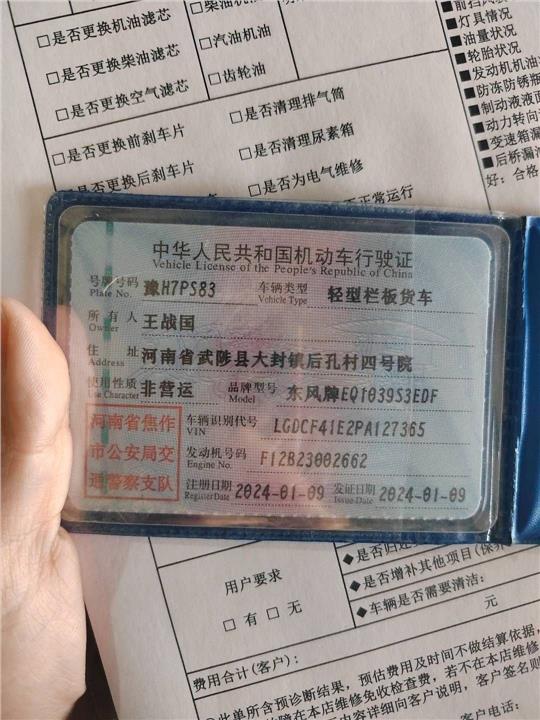 □是否更换机油滤芯
□是否更换柴油滤芯
□是否更换空气滤芯
□柴油机油
□汽油机油
□齿轮油
■前挡风玻
■灯具情况
■油量状况
■轮胎状况
■发动机机油
■防冻防锈瓶
■制动液液面
■动力转向
■变速箱漏
■后桥漏
好：合格
□是否更换前刹车片
□是否更换后刹车片
□是否清理排气筒
□是否清理尿素箱
□是否为电气维修
正常运行
中华人民共和国机动车行驶证
Vehicle License of the People's Republic of China
号牌号码 豫H7PS83 车辆类型 轻型栏板货车
Plate No. Vehicle Type
所有人 王战国
Owner
住址 河南省武陟县大封镇后孔村四号院
Address
使用性质 非营运 品牌型号 东风牌EQ1039S3EDF
Use Character Model
河南省焦作
市公安局交
通警察支队
车辆识别代号 LGDCF41E2PA127365
VIN
发动机号码 F12B23002662
Engine No.
注册日期 2024-01-09 发证日期 2024-01-09
Register Date Issue Date
用户要求
□ 有 □ 无
◆是否归还
◆是否增补其他项目(保养
◆车辆是否需要清洁：
元
费用合计(客户)：
客户电话：
①此单所含预诊断结果，预估费用及时间不做结算依据，
故障在本店维修免收检查费，若不在本店维修
内容详细向客户说明，客户签名则